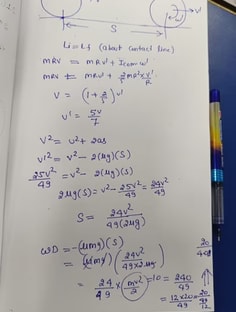 v'
ω'
S
Li = Lf (about contact line)
mRV = mRV' + Icom ω'
mRV = mRV' + 2/5 mR² × V'/R
V = (1 + 2/5) v'
v' = 5v/7
V² = u² + 2as
v'² = v² - 2(μg)(S)
25v²/49 = v² - 2(μg)(S)
2μg(S) = v² - 25v²/49 = 24v²/49
S = 24v²/49(2μg)
WD = -(μmg)(S)
= (μmg) (24v²/49×2μg)
= 24/49 × (mv²/2) = 10 = 240/49
= 12×20/49 =